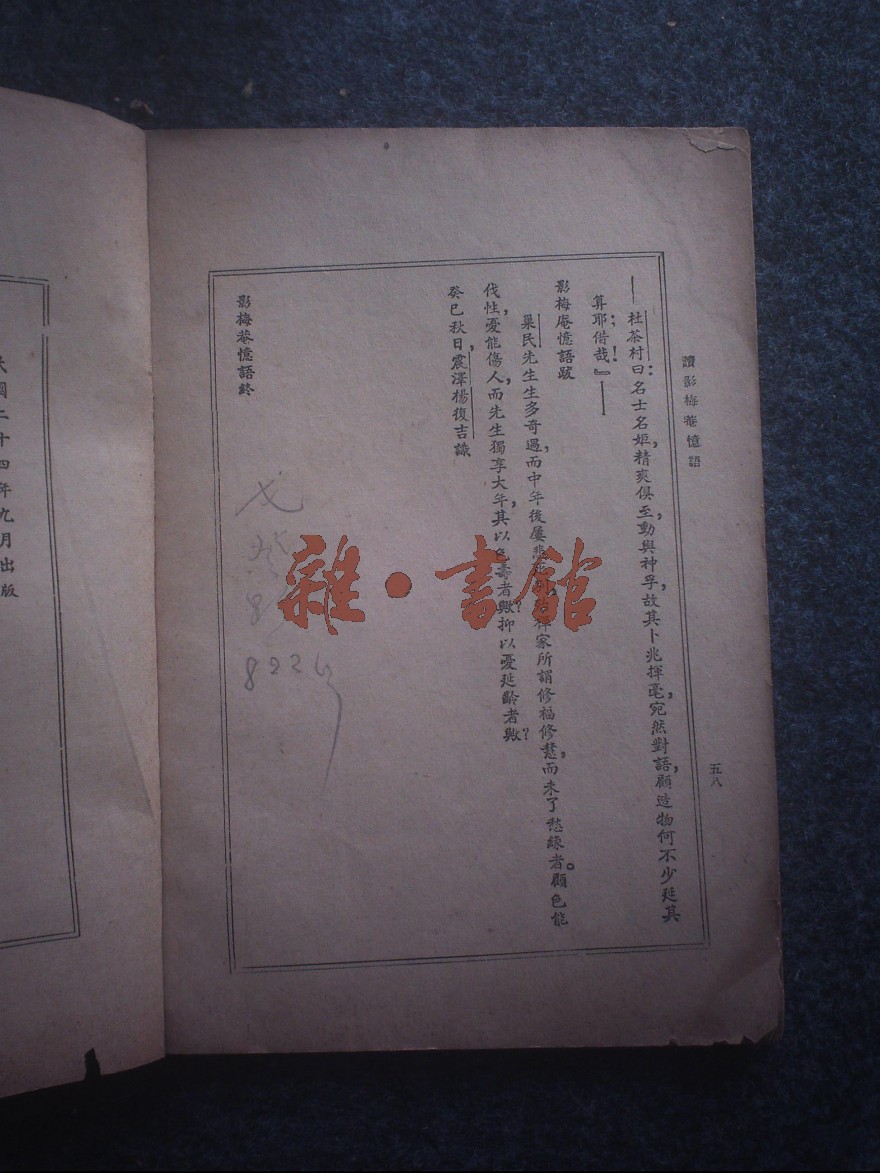 讀影梅菴憶語
五八
——杜茶村曰:名士名姬,精爽俱至,動與神孚,故其卜兆揮毫,宛然對語,顧造物何不少延其
算耶;惜哉!』——
影梅庵憶語跋
巢民先生生多奇遇,而中年後屢悲
家所謂修福修慧,而未了愁緣者。顧色能
伐性,憂能傷人,而先生獨享大年,其以色壽者歟?抑以憂延齡者歟?
癸巳秋日,震澤楊復吉識
影梅菴憶語終
雜·書館
822
國二十四年九月出版